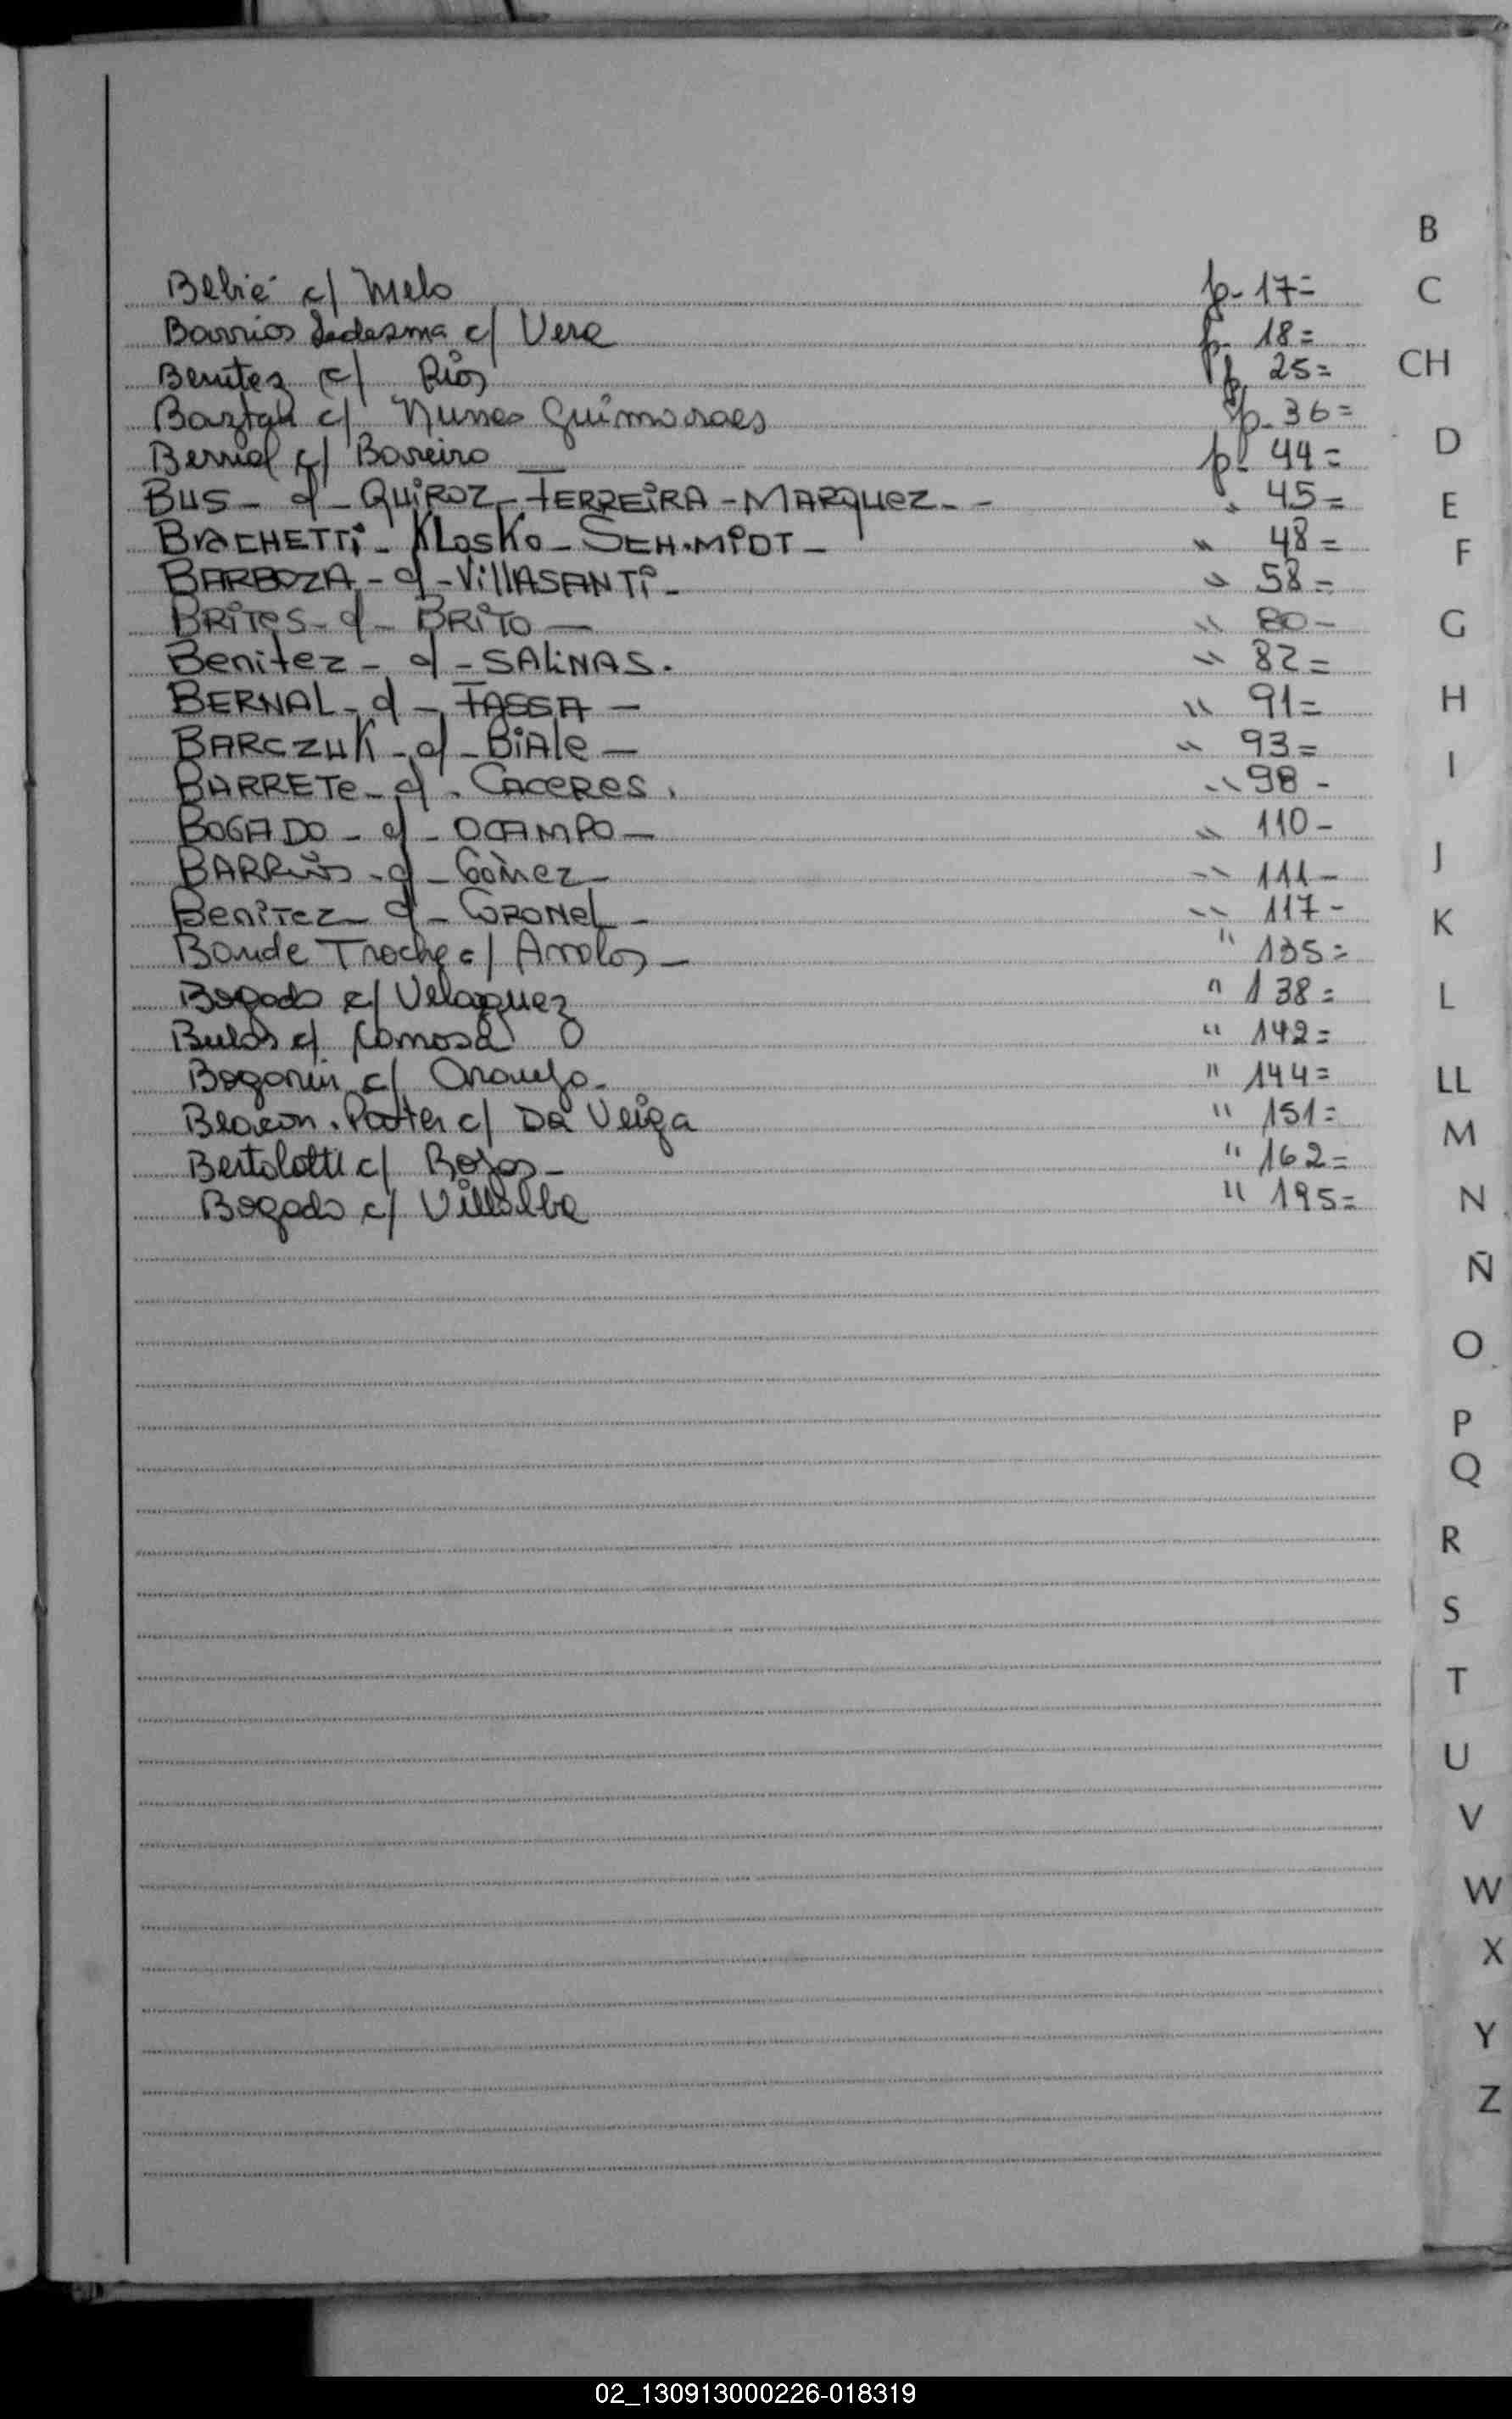 Bebié c/ Melo p- 17=
Barrios Ledesma c/ Vera p- 18=
Benitez c/ Rios p 25=
Baztan c/ Nunes Guimaraes p- 36=
Bernal c/ Boveiro p- 44=
BUS - c/ - QUIROZ - FERREIRA - MARQUEZ - - " 45=
BRACHETTI - KLosKo - SCH.MIDT - " 48=
BARBOZA - c/ - VILLASANTI - " 58=
BRITES - c/ - BRITO — " 80-
Benitez - c/ - SALINAS. " 82=
BERNAL - c/ - FASSA - " 91=
BARCZUK - c/ - BIALE — " 93=
BARRETE - c/ . CACERES . " 98 -
BOGADO - c/ - OCAMPO — " 110-
BARRIOS - c/ - Gómez - " 111-
BENITEZ - c/ - CORONEL - " 117-
Baude Troche c/ Avalos - " 135=
Bogado c/ Velazquez " 138=
Bulos c/ " 142=
Bogarin c/ Araujo - " 144=
c/ Da Veiga " 151=
Bertolotti c/ Rojas - " 162=
Bogado c/ Villalba " 195=
B
C
CH
D
E
F
G
H
I
J
K
L
LL
M
N
Ñ
O
P
Q
R
S
T
U
V
W
X
Y
Z
02_130913000226-018319